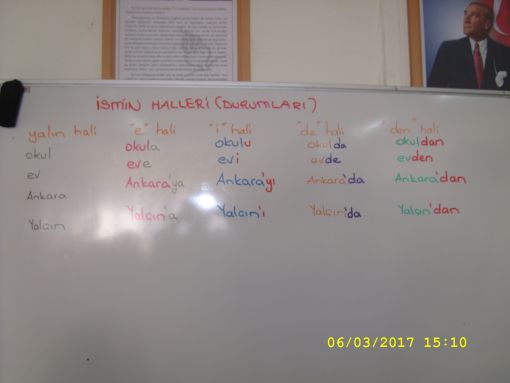 İSMİN HALLERİ (DURUMLARI)
yalın hali "e" hali "i" hali "de" hali "den" hali
okul okula okulu okulda okuldan
ev eve evi evde evden
Ankara Ankara'ya Ankara'yı Ankara'da Ankara'dan
Yalçın Yalçın'a Yalçın'ı Yalçın'da Yalçın'dan
06/03/2017 15:10